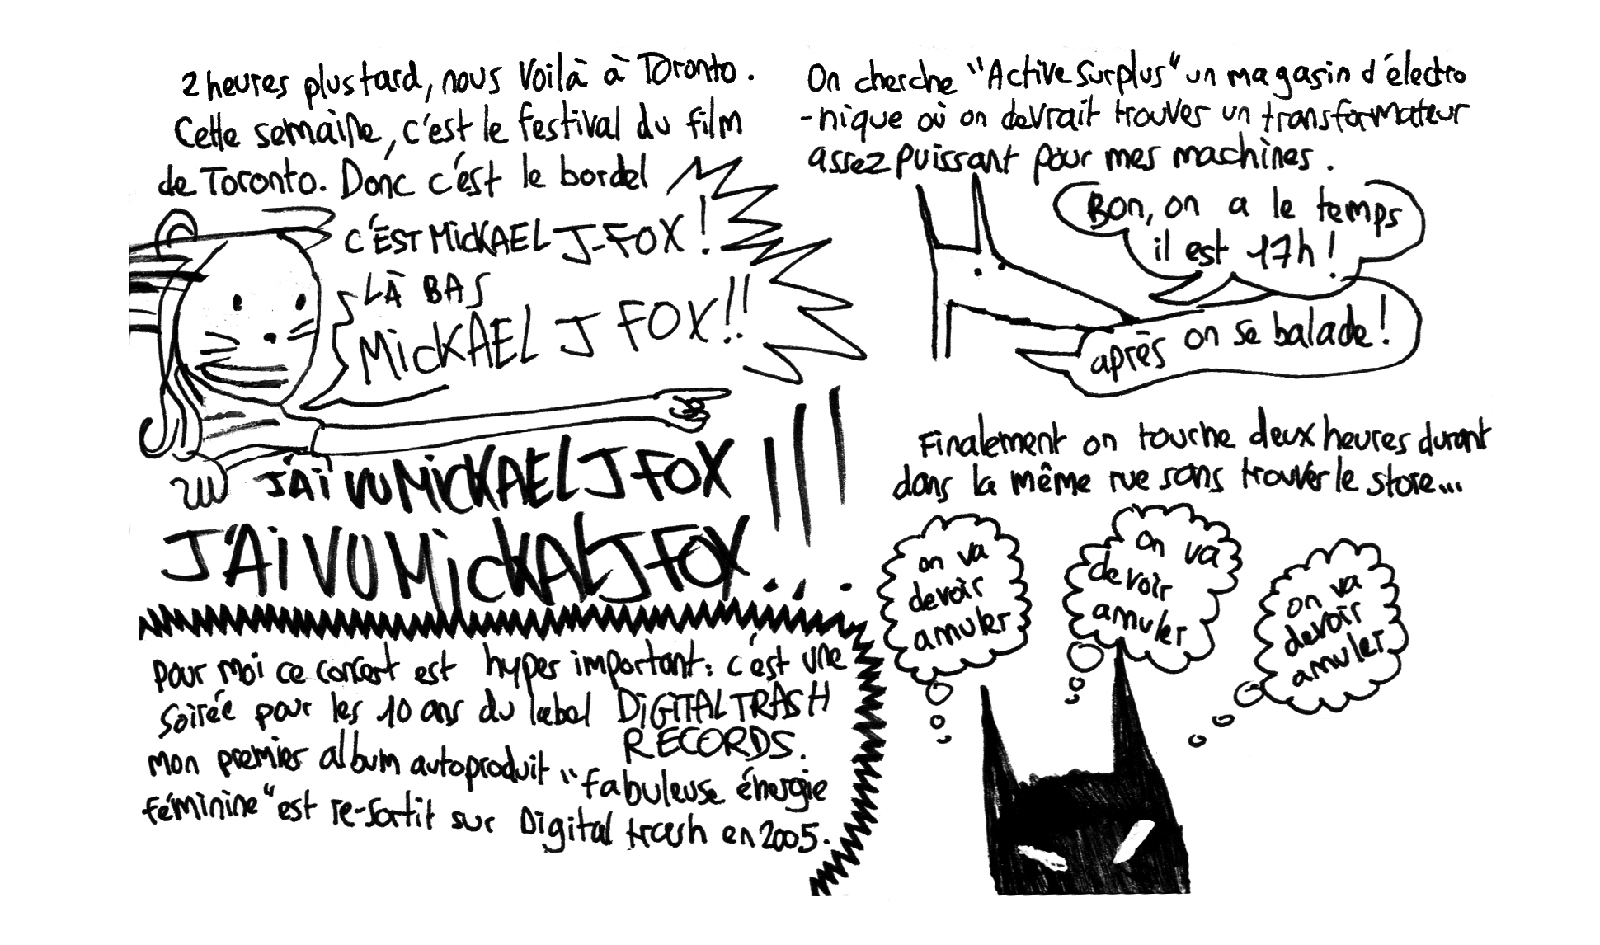 2 heures plus tard, nous voilà à Toronto.
Cette semaine, c'est le festival du film
de Toronto. Donc c'est le bordel
C'EST MICKAEL J-FOX !
LÀ BAS
MICKAEL J FOX !!
J'AI VU MICKAEL J FOX
J'AI VU MICKAL J FOX !!!
Pour moi ce concert est hyper important : c'est une
soirée pour les 10 ans du label DIGITAL TRASH
RECORDS.
mon premier album autoproduit "fabuleuse énergie
féminine" est re-sortit sur Digital trash en 2005.
On cherche "Active Surplus" un magasin d'électro
-nique où on devrait trouver un transformateur
assez puissant pour mes machines.
Bon, on a le temps
il est 17h !
après on se balade !
Finalement on tourne deux heures durant
dans la même rue sans trouver le store...
on va
devoir
annuler
on va
devoir
annuler
on va
devoir
annuler